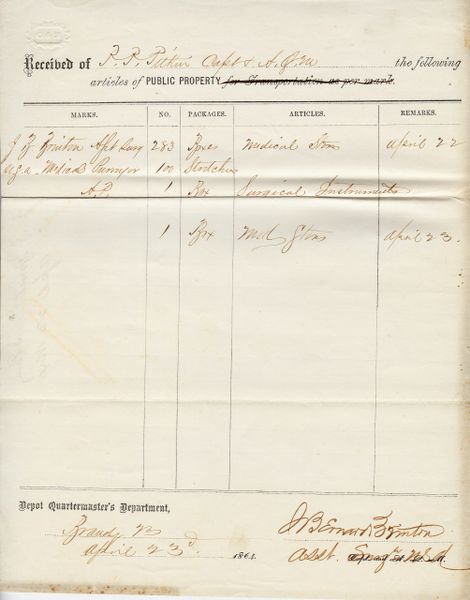 Received of P. P. Pitkin Capt & A.Q.M the following
articles of PUBLIC PROPERTY for Transportation as per mark.
MARKS. NO. PACKAGES. ARTICLES. REMARKS.
J B Brinton Asst Surg 283 Boxes Medical Stors April 22
U.S.A. Medical Purveyor 100 Stretchers
A.P. 1 Box Surgical Instruments
1 Box Med Stors April 23
Depot Quartermaster's Department,
Brandy
April 23d 1864.
J Bernard Brinton
Asst. Surgn U.S.A.